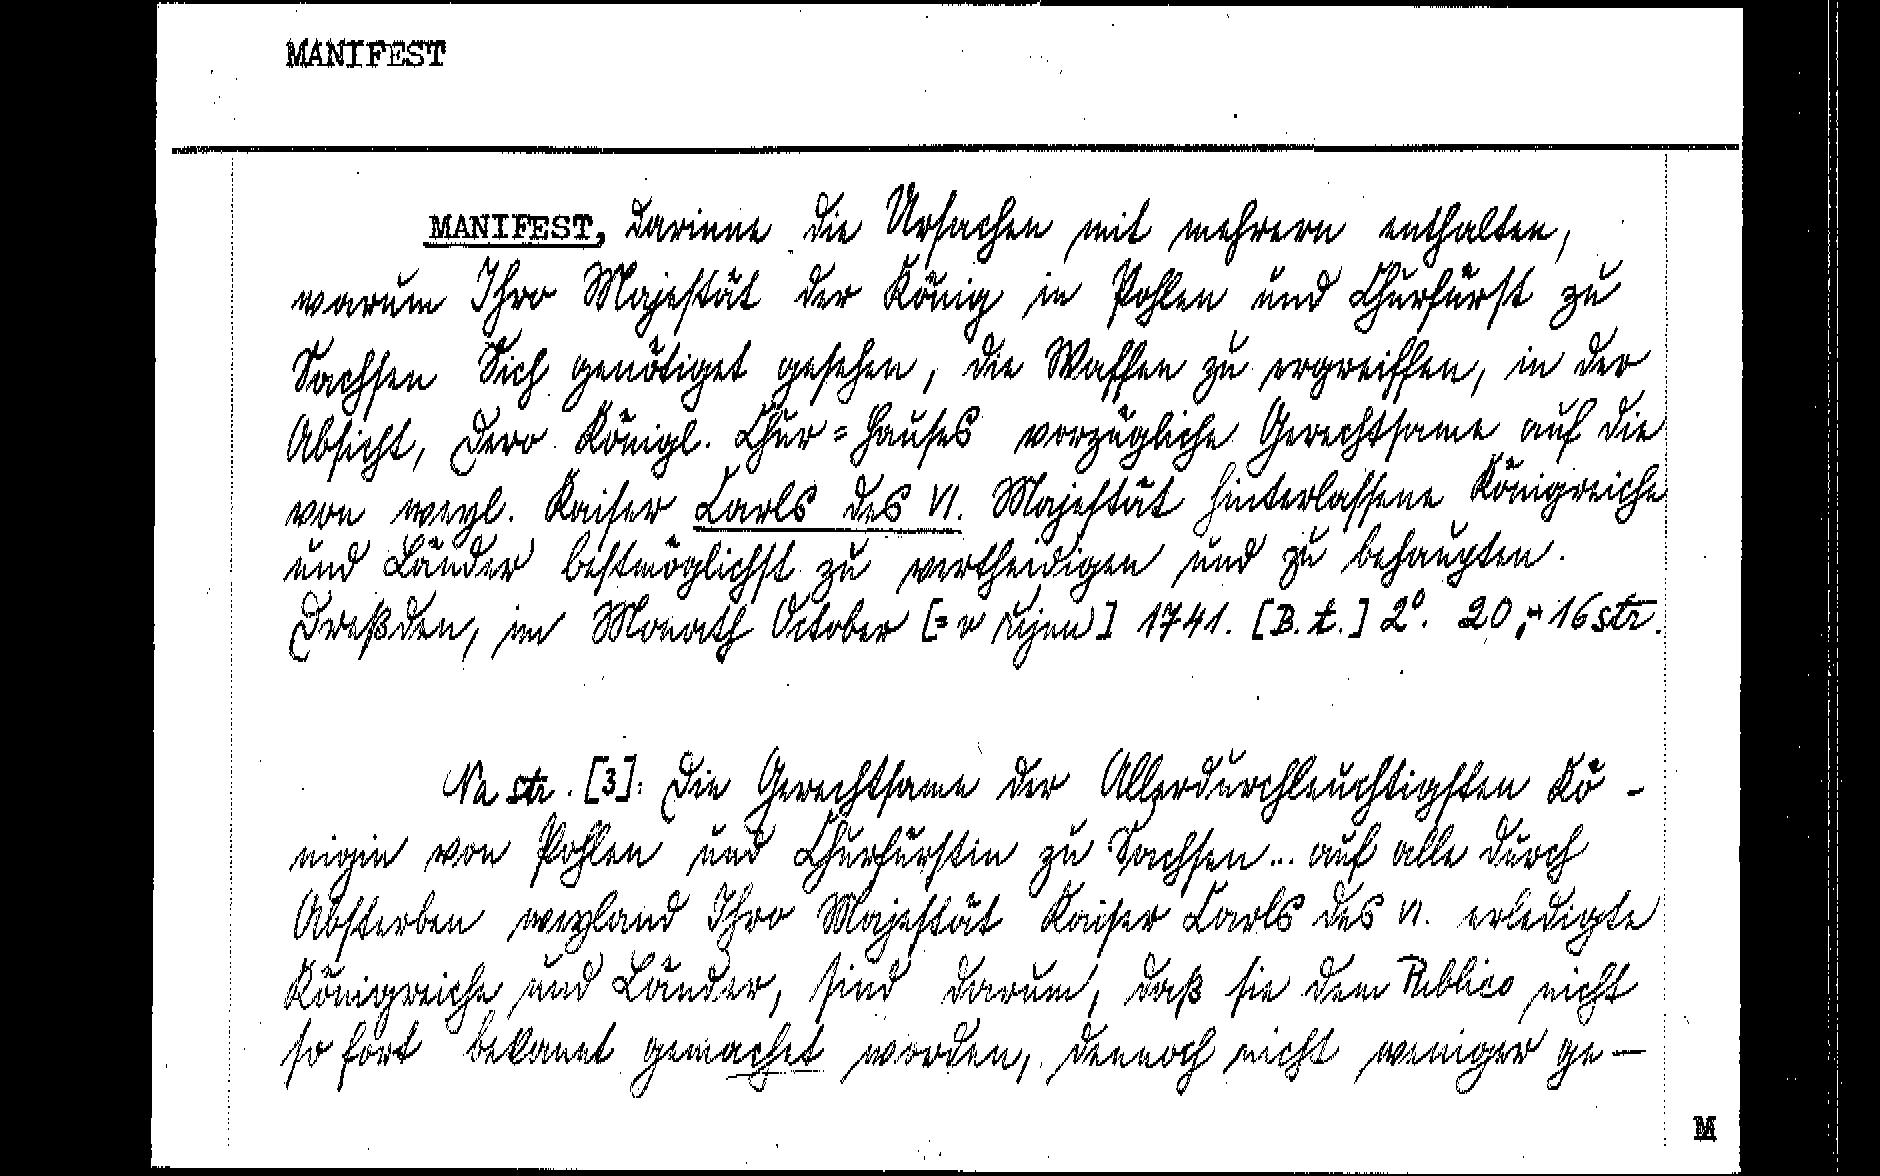 MANIFEST
MANIFEST, darinne die Ursachen mit mehrern enthalten,
warum Ihro Majestät der König in Pohlen und Churfürst zu
Sachsen Sich genötiget gesehen, die Waffen zu ergreiffen, in der
Absicht, Dero Königl. Chur=Hauses vorzügliche Gerechtsame auf die
von weyl. Kaiser Carls des VI. Majestät hinterlassene Königreiche
und Länder bestmöglichst zu vertheidigen und zu behaupten.
Dreßden, im Monath October 1741. [B.t.] 2°. 20, 16 str.
Na str. [3]: Die Gerechtsame der Allerdurchleuchtigsten Kö-
nigin von Pohlen und Churfürstin zu Sachsen... auf alle durch
Absterben weyland Ihro Majestät Kaiser Carls des VI. erledigte
Königreiche und Länder, sind darum, daß sie dem Publico nicht
so fort bekannt gemachet worden, dennoch nicht weniger ge-
M